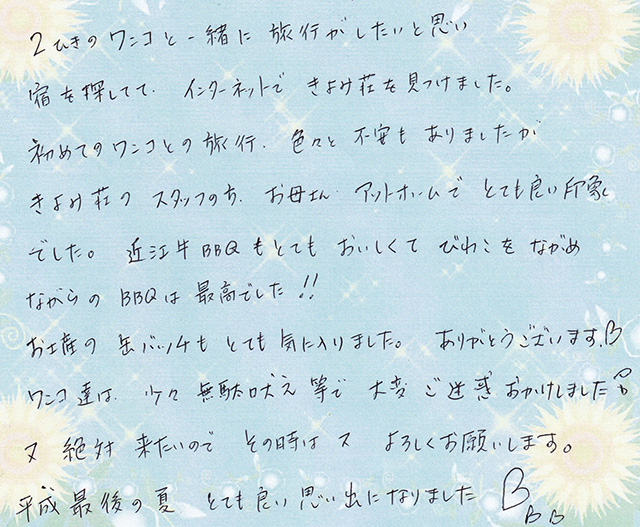 2ひきのワンコと一緒に旅行がしたいと思い
宿を探してて、インターネットできよみ荘を見つけました。
初めてのワンコとの旅行、色々と不安もありましたが
きよみ荘のスタッフの方、お母さん、アットホームでとても良い印象
でした。近江牛BBQもとてもおいしくてびわこをながめ
ながらのBBQは最高でした!!
お土産の缶バッチもとても気に入りました。ありがとうございます。
ワンコ達は、少々無駄吠え等で大変ご迷惑おかけしました
又絶対来たいのでその時は又よろしくお願いします。
平成最後の夏とても良い思い出になりました